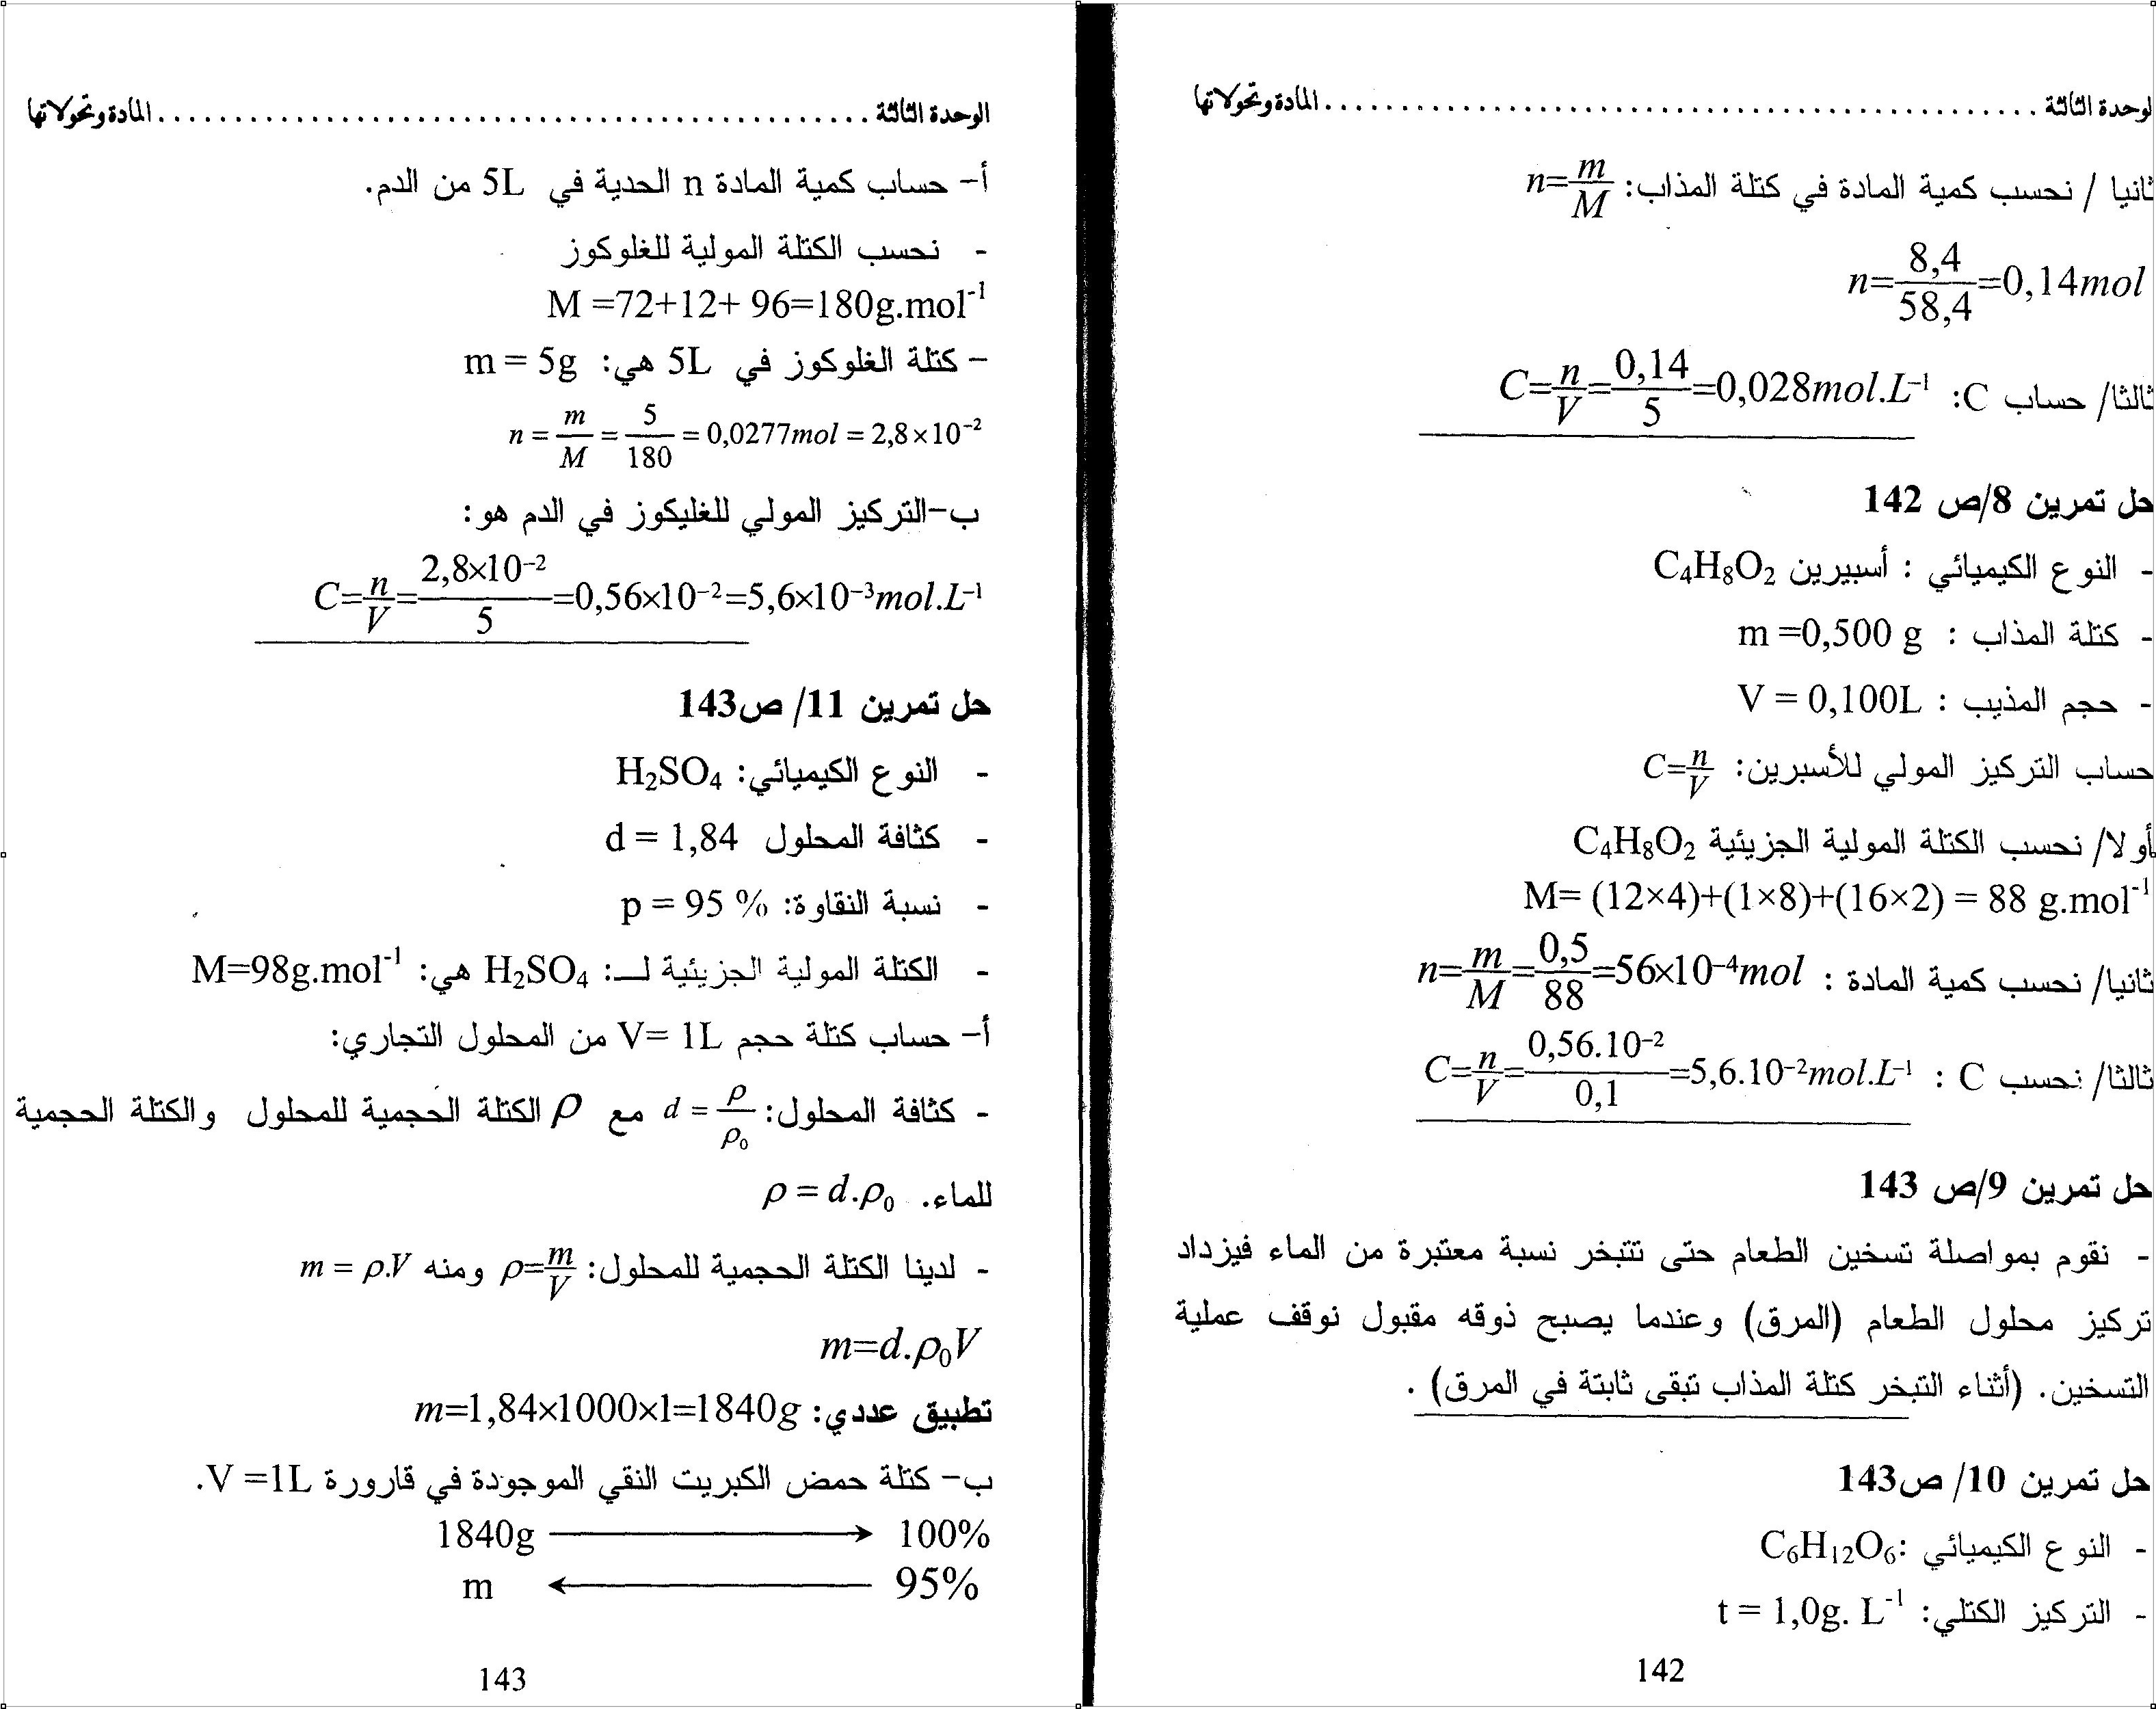 لوحدة الثالثة ................................................ المادة وتحولاتها
ثانيا / نحسب كمية المادة في كتلة المذاب: n=m/M
n=8,4/58,4=0,14mol
ثالثا/ حساب C: C=n/V=0,14/5=0,028mol.L⁻¹
حل تمرين 8/ص 142
- النوع الكيميائي : أسبيرين C₄H₈O₂
- كتلة المذاب : m =0,500 g
- حجم المذيب : V = 0,100L
حساب التركيز المولي للأسبرين: C=n/V
أولا/ نحسب الكتلة المولية الجزيئية C₄H₈O₂
M= (12×4)+(1×8)+(16×2) = 88 g.mol⁻¹
ثانيا/ نحسب كمية المادة : n=m/M=0,5/88=56×10⁻⁴mol
ثالثا/ نحسب C : C=n/V=0,56.10⁻²/0,1=5,6.10⁻²mol.L⁻¹
حل تمرين 9/ص 143
- نقوم بمواصلة تسخين الطعام حتى تتبخر نسبة معتبرة من الماء فيزداد
تركيز محلول الطعام (المرق) وعندما يصبح ذوقه مقبول نوقف عملية
التسخين. (أثناء التبخر كتلة المذاب تبقى ثابتة في المرق) .
حل تمرين 10/ ص143
- النوع الكيميائي :C₆H₁₂O₆
- التركيز الكتلي: t = 1,0g. L⁻¹
142
الوحدة الثالثة ................................................ المادة وتحولاتها
أ- حساب كمية المادة n الحدية في 5L من الدم.
- نحسب الكتلة المولية للغلوكوز
M =72+12+ 96=180g.mol⁻¹
- كتلة الغلوكوز في 5L هي: m = 5g
n = m/M = 5/180 = 0,0277mol = 2,8×10⁻²
ب-التركيز المولي للغليكوز في الدم هو:
C=n/V=2,8×10⁻²/5=0,56×10⁻²=5,6×10⁻³mol.L⁻¹
حل تمرين 11/ ص143
- النوع الكيميائي: H₂SO₄
- كثافة المحلول d = 1,84
- نسبة النقاوة: p = 95 %
- الكتلة المولية الجزيئية لـ: H₂SO₄ هي: M=98g.mol⁻¹
أ- حساب كتلة حجم V= 1L من المحلول التجاري:
- كثافة المحلول: d = ρ/ρ₀ مع ρ الكتلة الحجمية للمحلول والكتلة الحجمية
للماء. ρ = d.ρ₀
- لدينا الكتلة الحجمية للمحلول: ρ=m/V ومنه m = ρ.V
m=d.ρ₀V
تطبيق عددي: m=1,84×1000×1=1840g
ب- كتلة حمض الكبريت النقي الموجودة في قارورة V =1L.
1840g → 100%
m ← 95%
143